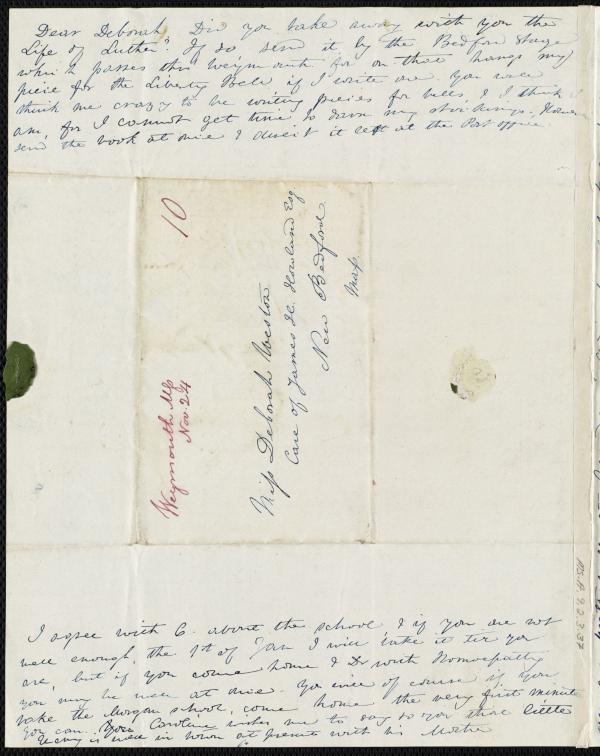 Dear Deborah, Did you take away with you the
Life of Luther? If so send it by the Bedford Stage
which passes thro Weymouth for on that hangs my
piece for the Liberty Bell if I write one. You will
think me crazy to be writing pieces for bells, & I think I
am, for I cannot get time to darn my stockings. However
send the book at once & direct it left at the Post office
10
Weymouth Ms
Nov. 24
Miss Deborah Weston
Care of James H. Howland Esq
New Bedford
Mass.
I agree with C. about the school & if you are not
well enough, the 1st of Jan I will take it till you
are, but if you come home & Dr with Homoeopathy
you may be well at once. You will of course if you
take the Morgan school, come home the very first minute
you can. Caroline wishes me to say to you that little
is in town at present with his Mother
MS.A.9.2.3.37